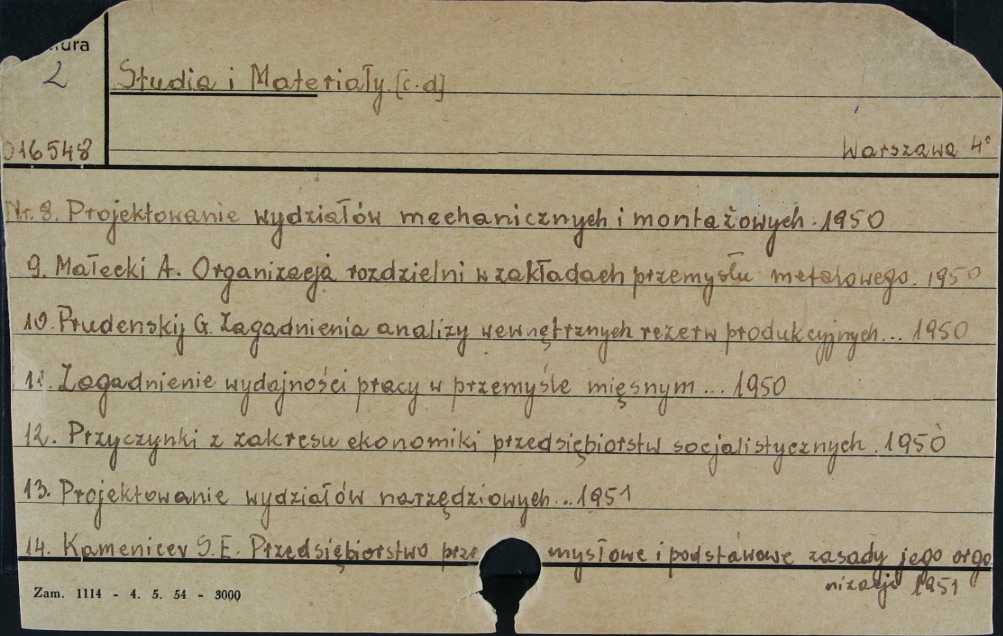 ura
L
Studia i Materiały. [c.d]
016548
Warszawa 4°
Nr. 8. Projektowanie wydziałów mechanicznych i montażowych. 1950
9. Małecki A. Organizacja rozdzielni w zakładach przemysłu metalowego. 1950
10. Prudenskij G. Zagadnienia analizy wewnętrznych rezerw produkcyjnych... 1950
11. Zagadnienie wydajności pracy w przemyśle mięsnym... 1950
12. Przyczynki z zakresu ekonomiki przedsiębiorstw socjalistycznych. 1950
13. Projektowanie wydziałów narzędziowych... 1951
14. Kamenicev S.E. Przedsiębiorstwo prze mysłowe i podstawowe zasady jego orga
nizacji 1951
Zam. 1114 - 4. 5. 54 - 3000